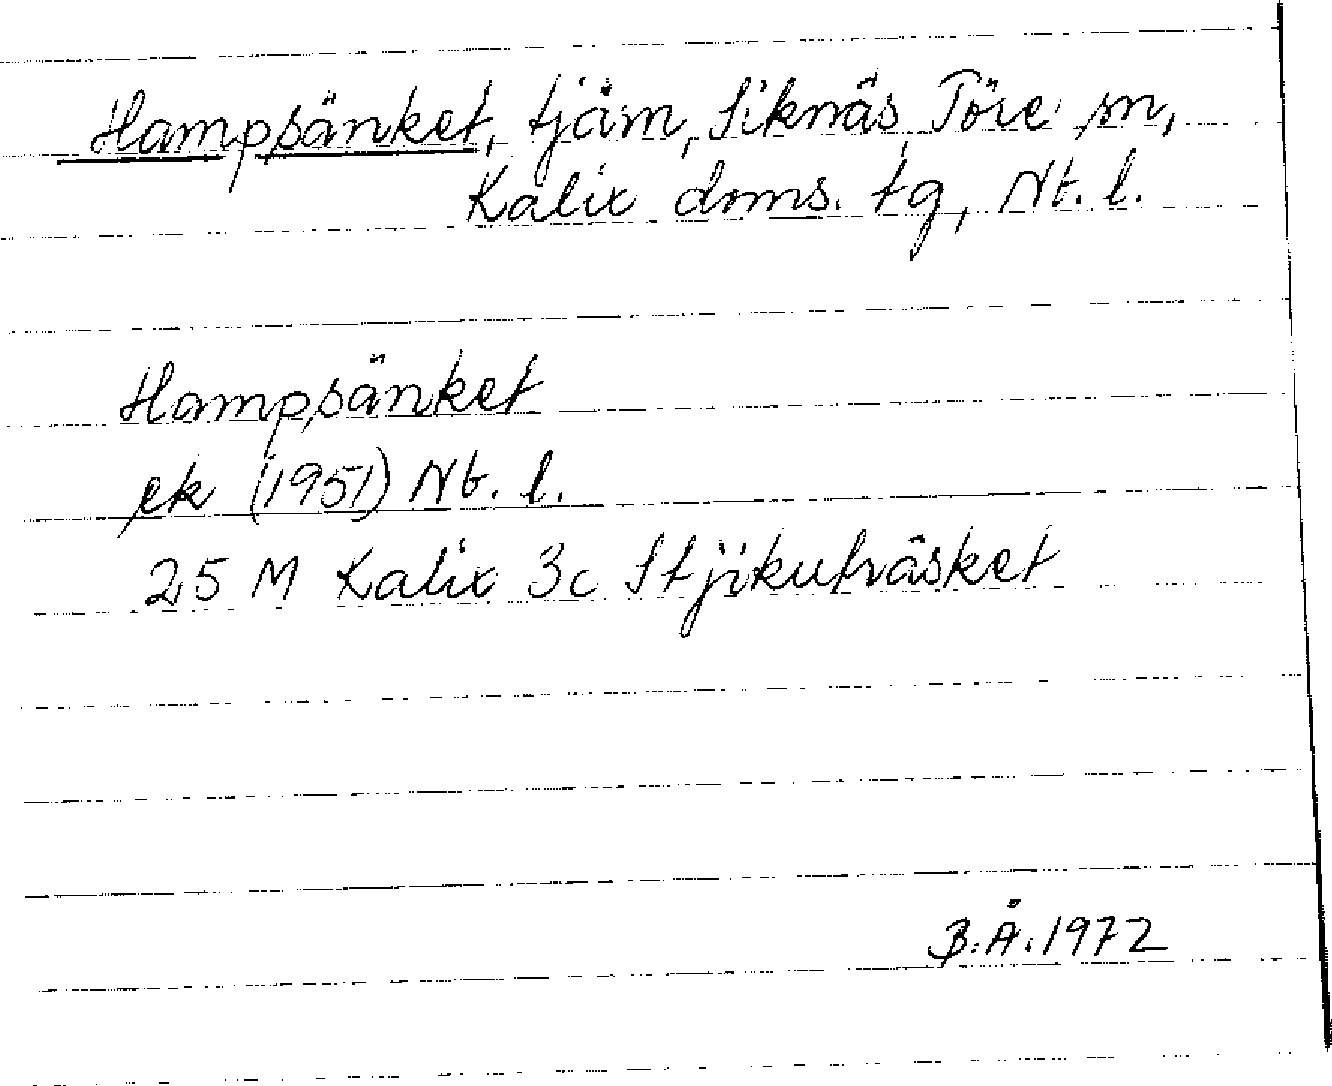 Hampsänket, tjärn, Siknäs, Töre sn,
Kalix doms. tg, Nb. l.
Hampsänket
ek (1951) Nb. l.
25 M Kalix 3c Stjikuträsket
B.Å. 1972